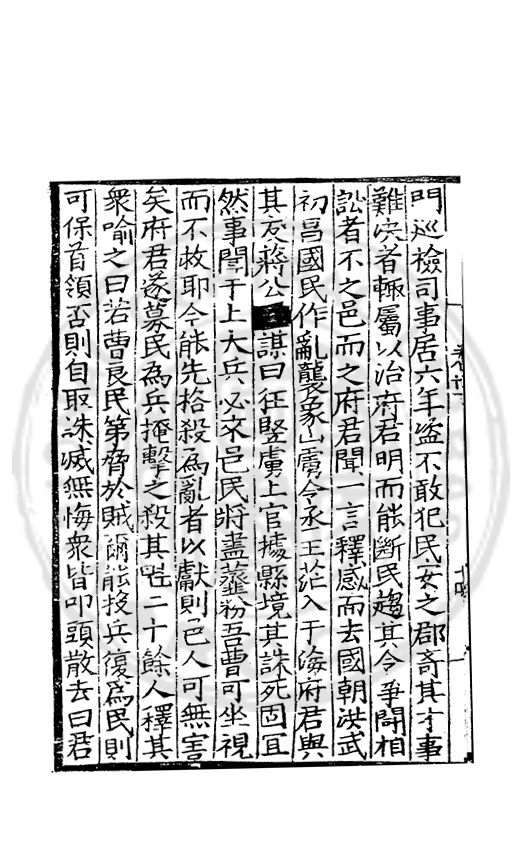 門巡檢司事居六年盜不敢犯民安之郡奇其才事
難决者輒屬以治府君明而能斷民趨其令爭鬪相
訟者不之邑而之府君聞一言釋感而去國朝洪武
初昌國民作亂襲象山虜令丞王茫入于海府君與
其友蔣公謀曰狂豎虜上官據縣境其誅死固宜
然事聞于上大兵必來邑民將盡虀粉吾曹可坐視
而不救耶今能先格殺為亂者以獻則邑人可無害
矣府君遂募民為兵掩擊之殺其二十餘人釋其
衆喻之曰若曹良民第脅於賊爾能投兵復為民則
可保首領否則自取誅滅無悔衆皆叩頭散去曰君